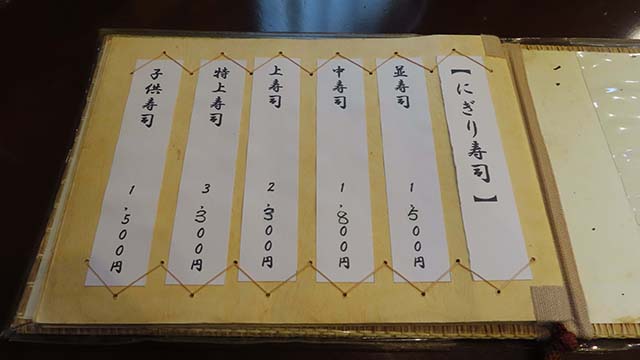 【にぎり寿司】
並寿司 1,500円
中寿司 1,800円
上寿司 2,300円
特上寿司 3,300円
子供寿司 1,500円